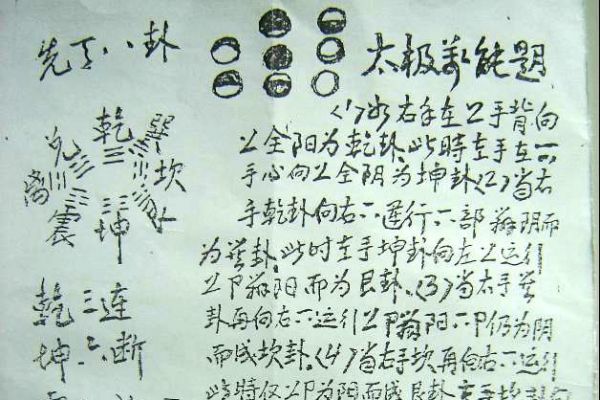 先天八卦
太极萬能題
乾
兑
巽
离
坎
震
坤
艮
(1)以右手在上手背向
上全阳为乾卦.此時左手在下
手心向上全阴为坤卦(2)当右
手乾卦向右下運行下部翻阴而
为巽卦.此时左手坤卦向左上运行
上P翻阳而为艮卦.(3)当右手巽
卦再向右下运行上P翻阳下P仍为阴
而成坎卦.(4)当右手坎再向右下运行
此時仅上P为阳而成艮卦左手坎卦向
乾三连
坤六断